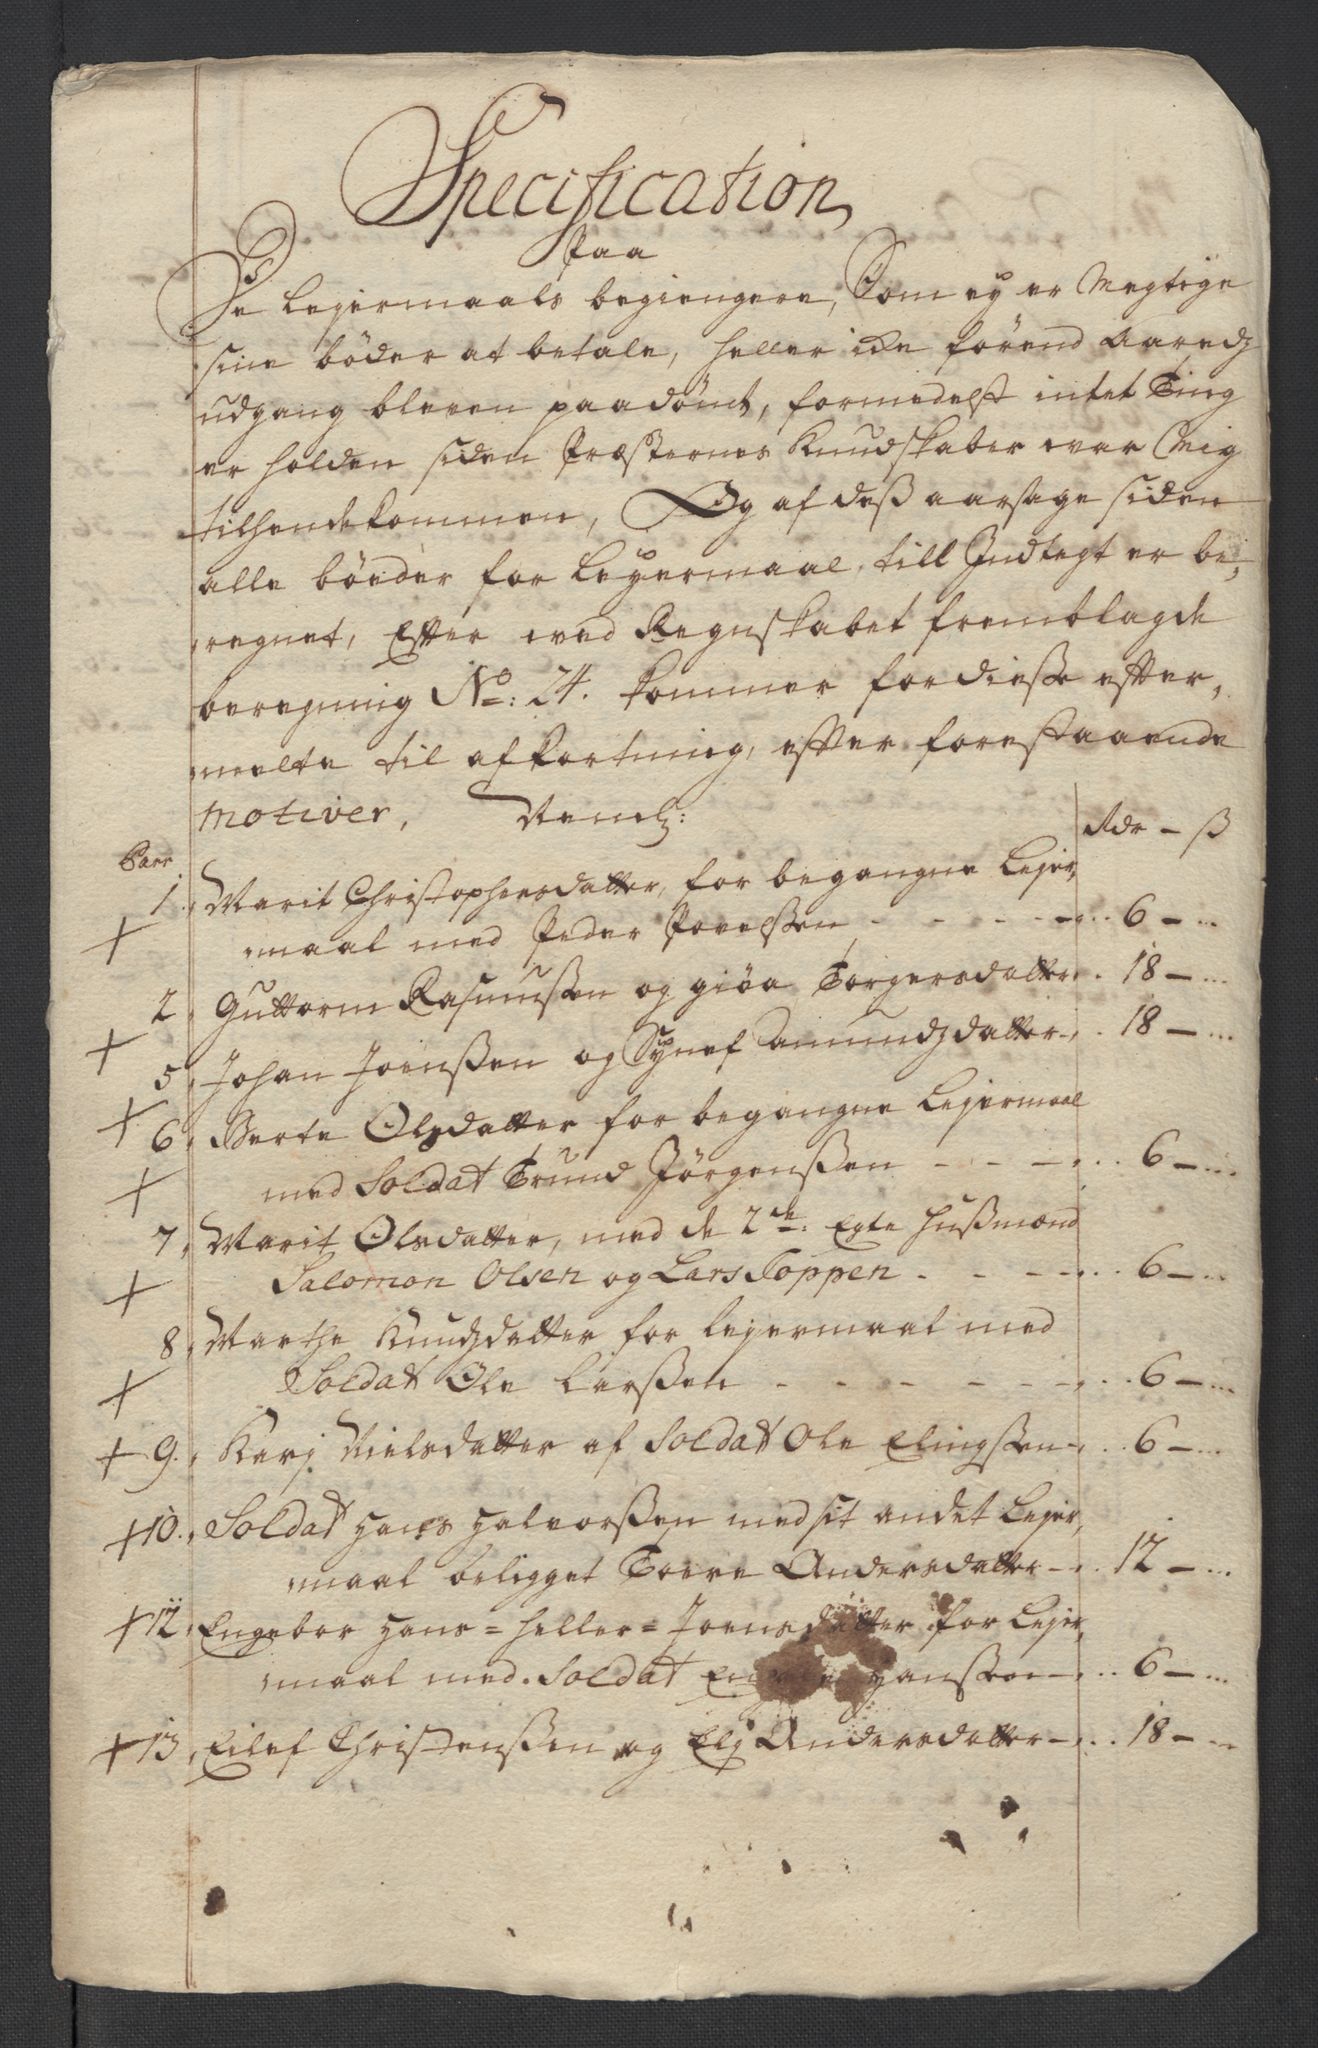 Specification
Paa
De Lejermaals begiengere, Som ej er Megtige
sine bøder at betale, heller icke førend Aaredz
udgang bleven paadømt, formedelst intet Ting
er holden siden Præsternes Kundskaber war Mig
tilhendekommen, Og af dess aarsage siden
alle bøeder for Leyermaal till Indtegt er be,
regnet, Efter wed Regnskabet fremblagde
beregning No: 24. kommer for diesse efter,
meelte til afkortning, efter forestaaende
Motiver, Neml:
Rdr - ß
Parr
1. Marit Christophersdatter, for begangne Lejer,
maal med Peder Povelssen - - - - - 6 -
2. Guttorm Rasmussen og giøa Torgersdatter 18 -
5. Johan Joenssen og Synef Amundzdatter 18 -
6. Berte Olsdatter for begangne Lejermaal
med Soldat Trund Jørgenssen - - - 6 -
7. Marit Olsdatter, med de 2de: Egte Hussmænd
Salomon Olsen og Lars Toppen - - - 6 -
8. Marthe Knudzdatter for lejermaal med
Soldat Ole Larssen - - - - - - 6 -
+ 9. Karj Nielsdatter af Soldat Ole Elingssen 6 -
+ 10. Soldat Hans Halvorssen med sit andet Lejer,
maal beligget Toere Andersdatter - 12 -
+ 12. Engebor Hans = heller = Joensdatter for Lejer,
maal med Soldat Hanssen 6 -
+ 13. Eilef Christenssen og Elj Andersdatter - 18 -